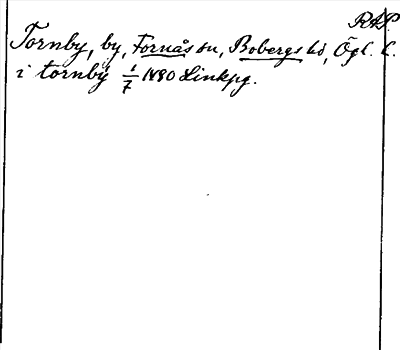 RAP.
Tornby, by, Fornås sn, Bobergs hd, Ögl. l.
i tornby 1/7 1480 Linkpg.